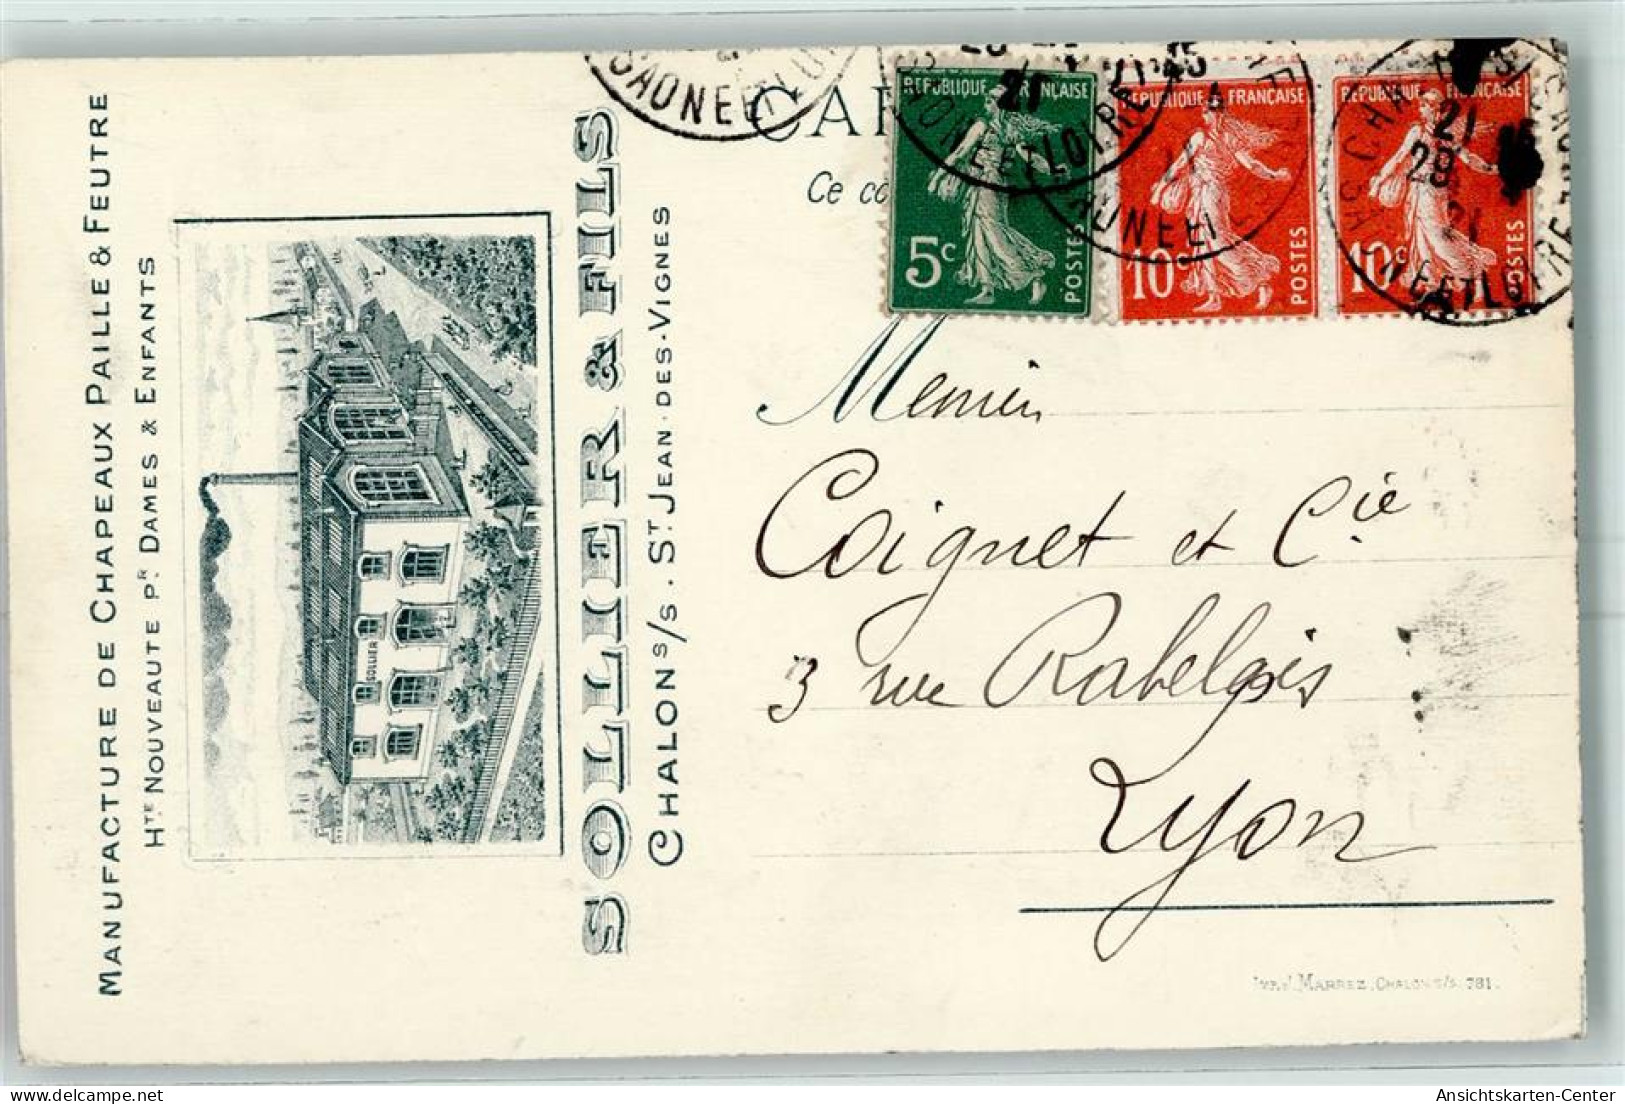 MANUFACTURE DE CHAPEAUX PAILLE & FEUTRE
HTE NOUVEAUTÉ PR. DAMES & ENFANTS
SOLLIER
SOLLIER & FILS
CHALON S/S. ST JEAN-DES-VIGNES
Ce
REPUBLIQUE FRANÇAISE
5c
POSTES
REPUBLIQUE FRANÇAISE
10c
POSTES
REPUBLIQUE FRANÇAISE
10c
POSTES
SAONE ET LOIRE
21
28
21
M
Coignet et Cie
3 rue Rabelais
Lyon
IMP. J. MARREZ, CHALON S/S. 781.
Ansichtskarten-Center